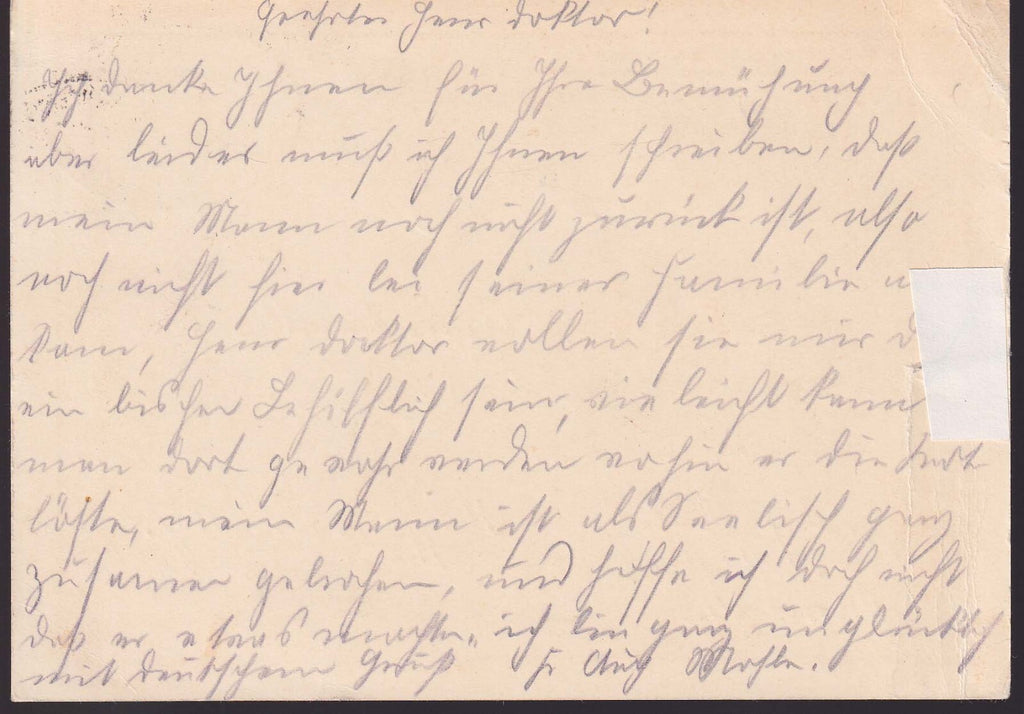 Geehrter Herr Doktor!
Ich danke Ihnen für Ihre Bemühung
aber leider muß ich Ihnen schreiben, daß
mein Mann noch nicht zurück ist, also
noch nicht hier bei seiner Familie
kam, Herr Doktor wollen sie mir
ein bischen Behilflich sein, vieleicht kann
man dort gewahr werden wohin er die
löste, mein Mann ist als Seelisch ganz
zusamen gebrochen, und hoffe ich doch nicht
daß er etwas machte, ich bin ganz unglücklich
mit deutschem Gruß Fr. Aug